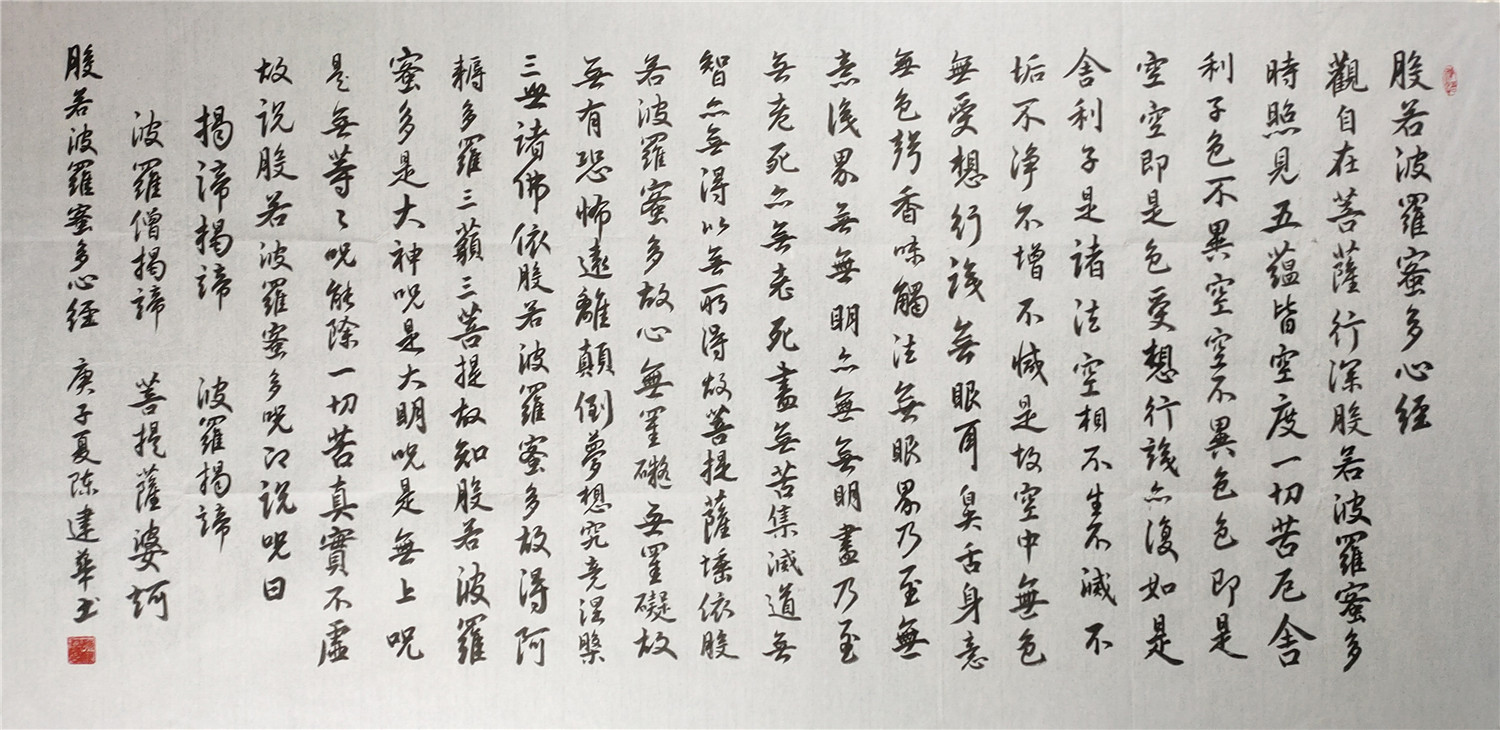 般若波羅蜜多心经
觀自在菩薩行深般若波羅蜜多
時照見五蘊皆空度一切苦厄舎
利子色不異空空不異色色即是
空空即是色受想行識亦復如是
舎利子是諸法空相不生不滅不
垢不净不增不減是故空中無色
無受想行識無眼耳鼻舌身意
無色聲香味觸法無眼界乃至無
意識界無無明亦無無明盡乃至
無老死亦無老死盡無苦集滅道無
智亦無得以無所得故菩提薩埵依般
若波羅蜜多故心無罣礙無罣礙故
無有恐怖遠離顛倒夢想究竟涅槃
三世諸佛依般若波羅蜜多故得阿
耨多羅三藐三菩提故知般若波羅
蜜多是大神呪是大明呪是無上呪
是無等々呪能除一切苦真實不虛
故説般若波羅蜜多呪即説呪曰
揭諦揭諦 波羅揭諦
波羅僧揭諦 菩提薩婆訶
般若波羅蜜多心经 庚子夏陈建華书